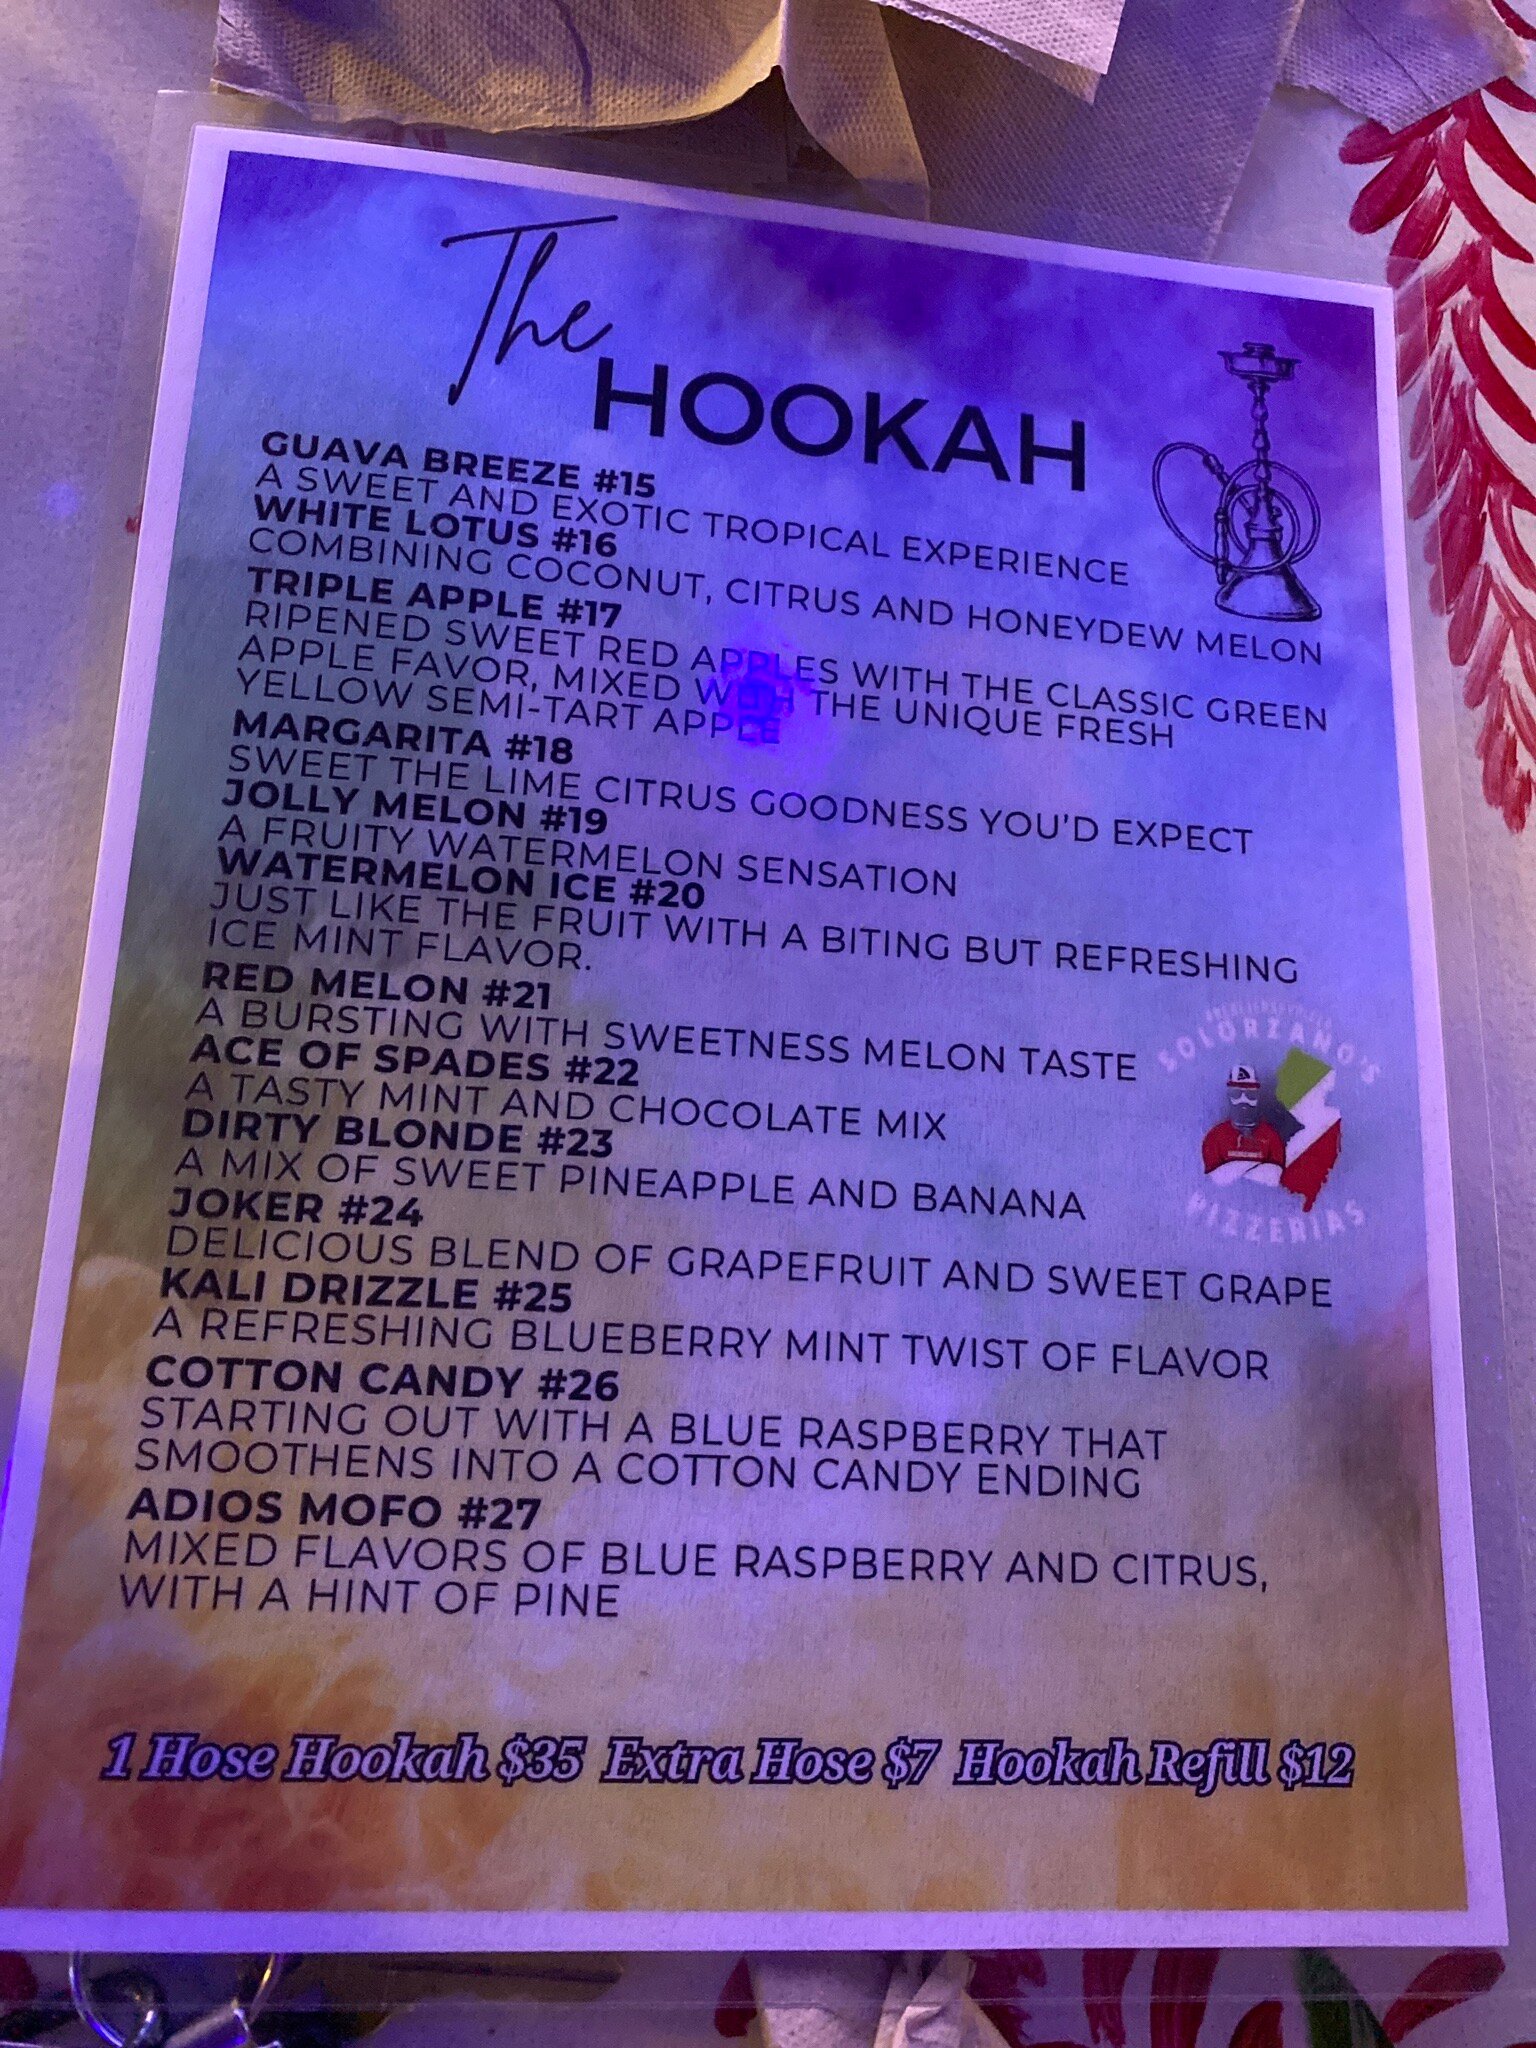 The
HOOKAH
GUAVA BREEZE #15
A SWEET AND EXOTIC TROPICAL EXPERIENCE
WHITE LOTUS #16
COMBINING COCONUT, CITRUS AND HONEYDEW MELON
TRIPLE APPLE #17
RIPENED SWEET RED APPLES WITH THE CLASSIC GREEN
APPLE FAVOR, MIXED WITH THE UNIQUE FRESH
YELLOW SEMI-TART APPLE
MARGARITA #18
SWEET THE LIME CITRUS GOODNESS YOU'D EXPECT
JOLLY MELON #19
A FRUITY WATERMELON SENSATION
WATERMELON ICE #20
JUST LIKE THE FRUIT WITH A BITING BUT REFRESHING
ICE MINT FLAVOR.
RED MELON #21
A BURSTING WITH SWEETNESS MELON TASTE
ACE OF SPADES #22
A TASTY MINT AND CHOCOLATE MIX
DIRTY BLONDE #23
A MIX OF SWEET PINEAPPLE AND BANANA
JOKER #24
DELICIOUS BLEND OF GRAPEFRUIT AND SWEET GRAPE
KALI DRIZZLE #25
A REFRESHING BLUEBERRY MINT TWIST OF FLAVOR
COTTON CANDY #26
STARTING OUT WITH A BLUE RASPBERRY THAT
SMOOTHENS INTO A COTTON CANDY ENDING
ADIOS MOFO #27
MIXED FLAVORS OF BLUE RASPBERRY AND CITRUS,
WITH A HINT OF PINE
SOLORZANO'S
PIZZERIAS
1 Hose Hookah $35 Extra Hose $7 Hookah Refill $12